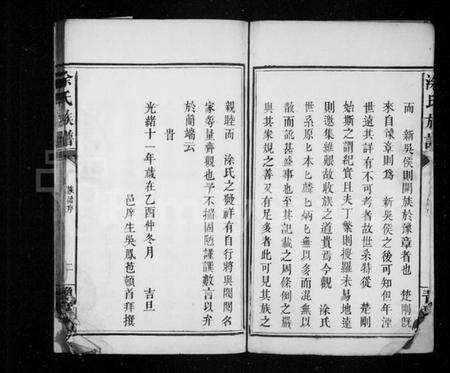 涂氏族譜
而 新吳侯則開族於豫章者也 楚剛既
來自豫章則為 新吳侯之後可知但年湮
世遠其詳有不可考者故世系特從 楚剛
始斯之謂紀實且夫丁繁則搜羅未易地遠
則邀集維艱故收族之道貴焉今觀 涂氏
世系原〻本〻麟〻炳〻無以多而混無以
散而訛甚盛事也至其記載之周條例之嚴
與其家規之善又有足多者此可見其族之
親睦而 涂氏之發祥有自行將與閥閱名
家等量齊觀也予不揣固陋謹譔數言以弁
於簡端云
旹
光緒十一年歲在乙酉仲冬月 吉旦
邑庠生吳鳳苞頓首拜撰
涂氏族譜
族譜序
二